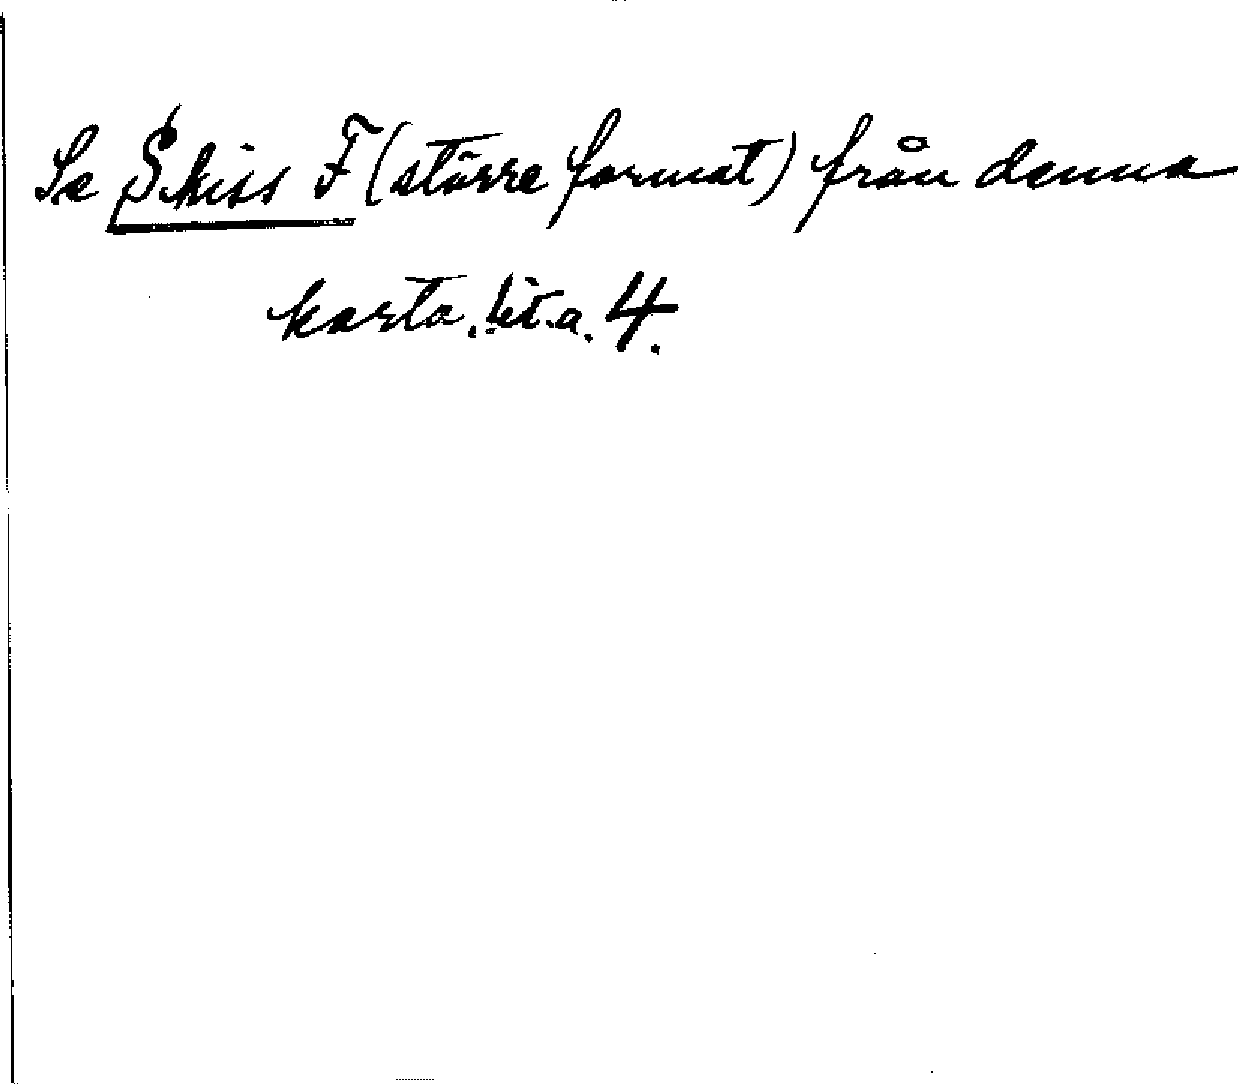 Se Skiss F (större format) från denna
karta. lit.a. 4.